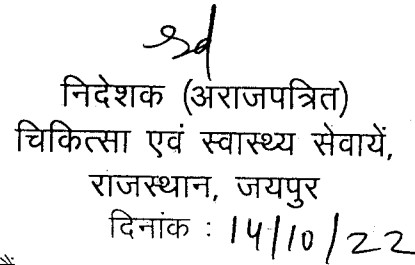 sd
निदेशक (अराजपत्रित)
चिकित्सा एवं स्वास्थ्य सेवायें,
राजस्थान, जयपुर
दिनांक : 14/10/22